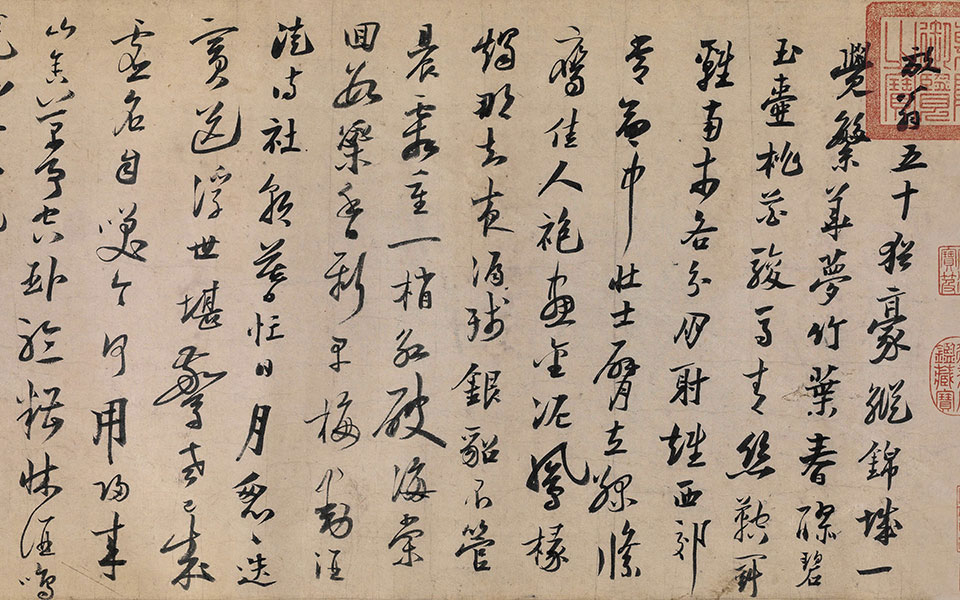 放翁五十猶豪縱錦城一
覺繁華夢竹葉春醪碧
玉壺桃花駿馬青絲鞚鬥
雞南市各分朋射雉西郊
常命中壯士臂立綠絛
鷹佳人袍畫金泥鳳椽
燭那知夜漏殘銀貂不管
晨霜重一梢紅破海棠
回數蕊香新早梅動酒
徒詩社朝暮忙日月匆匆迭
賓送浮世堪驚老已成
虛名自笑今何用歸來
山舍萬事空臥聽糟床酒鳴